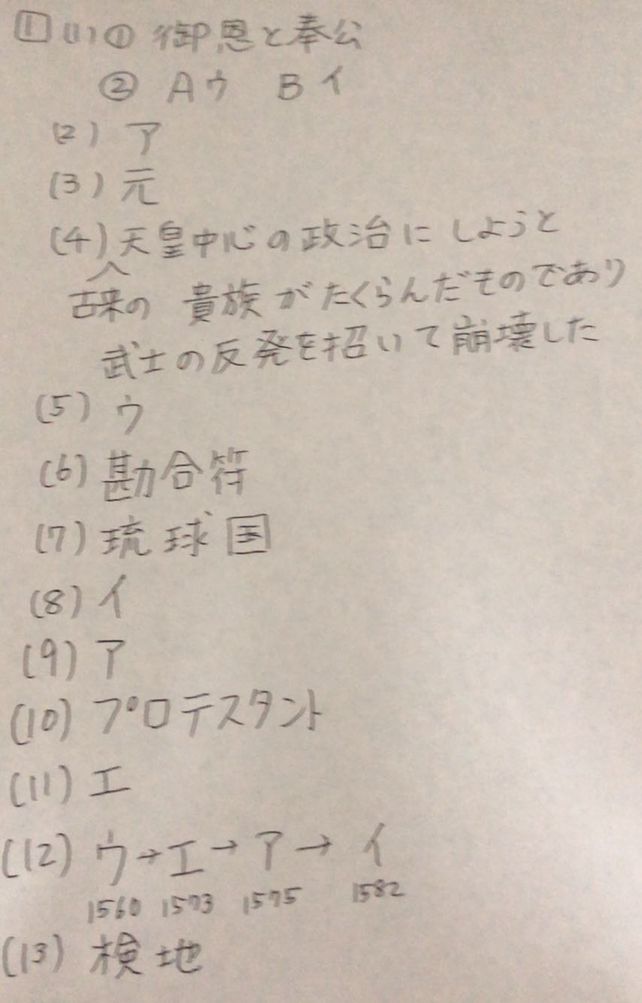 1 (1) ① 御恩と奉公
② Aウ Bイ
(2) ア
(3) 元
(4) 天皇中心の政治にしようと
古来の 貴族がたくらんだものであり
武士の反発を招いて崩壊した
(5) ウ
(6) 勘合符
(7) 琉球国
(8) イ
(9) ア
(10) プロテスタント
(11) エ
(12) ウ→エ→ア→イ
1560 1573 1575 1582
(13) 検地